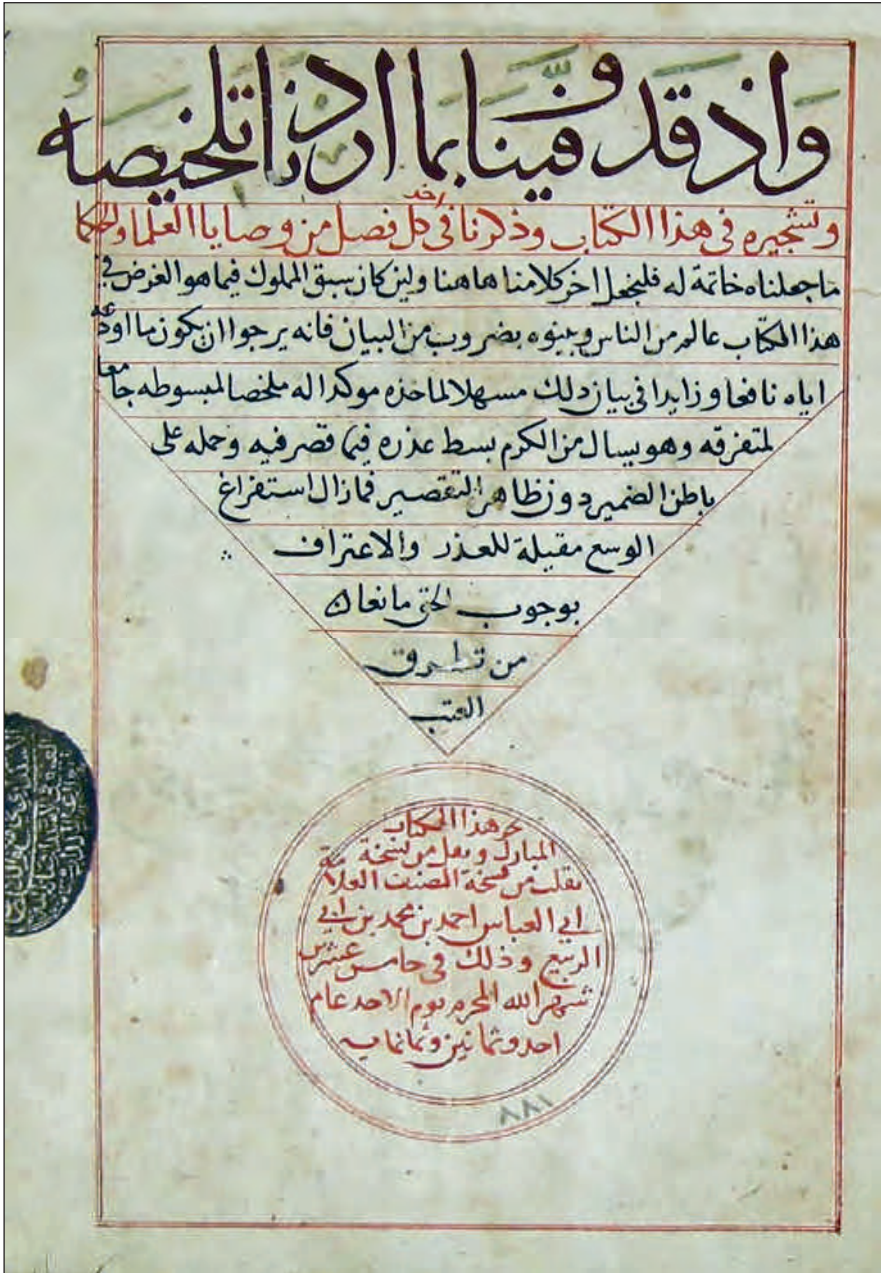 واذ قد وفينا بما اردنا تلخيصه
وتشجيره فى هذا الكتاب وذكرنا فى اخر كل فصل من وصايا العلما والحكما
ما جعلناه خاتمة له فلنجعل اخر كلامنا هاهنا ولين كان سبق المملوك فيما هو الغرض فى
هذا الكتاب عالم من الناس وبينوه بضروب من البيان فانه يرجوا ان يكون ما اودعه
اياه نافعا وزايدا فى بيان دلك مسهلا لماخذه موكدا له ملخصا لمبسوطه جامعا
لمتفرقه وهو يسال من الكرم بسط عذره فيما قصر فيه وحمله على
باطن الضمير دون ظاهر التقصير فما زال استفراغ
الوسع مقيلة للعذر والاعتراف
بوجوب الحق مانعا
من تطرق
العتب
هذا الكتاب
المبارك ونقل من نسخة
نقلت من نسخة المصنف العلامة
ابي العباس احمد بن محمد بن ابي
الربيع وذلك فى خامس عشرين
شهر الله المحرم يوم الاحد عام
احد وثمانين وثمانمايه
٨٨١